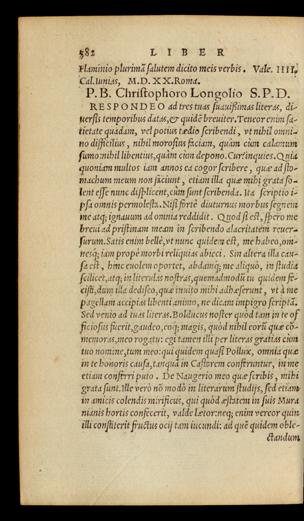 582 LIBER
Flaminio plurimã salutem dicito meis verbis. Vale. IIII.
Cal. Iunias, M. D. XX. Roma.
P. B. Christophoro Longolio S. P. D.
RESPONDEO ad tres tuas suauissimas literas, di-
uersis temporibus datas, & quidẽ breuiter. Teneor enim sa-
tietate quadam, vel potius tædio scribendi, vt nihil omni-
no difficilius, nihil morosius faciam, quàm cùm calamum
sumo: nihil libentius, quàm cùm depono. Cur? inquies. Quia
quoniam multos iam annos ea cogor scribere, quæ ad sto-
machum meum non faciunt, etiam illa quæ mihi grata so-
lent esse nunc displicent, cùm sunt scribenda. Ita scriptio i-
psa omnis permolesta. Nisi fortè diuturnus morbus segnem
me atq; ignauum ad omnia reddidit. Quod si est, spero me
breui ad pristinam meam in scribendo alacritatem reuer-
surum. Satis enim bellè, vt nunc quidem est, me habeo, om-
nesq; iam propè morbi reliquias abieci. Sin altera illa cau-
sa est, huc euolem oportet, abdamq; me aliquò, in studia
scilicet, atq; in literulas nostras, quemadmodũ tu quidem fe-
cisti, dum illa dedisco, quæ inuito mihi adhæserunt, vt à me
pagellam accipias libenti animo, ne dicam impigro scriptã.
Sed venio ad tuas literas. Bolducus noster quòd tam in te of
ficiosus fuerit, gaudeo, eoq; magis, quòd nihil eorũ quæ cõ-
memoras, meo rogatu: egi tamen illi per literas gratias cùm
tuo nomine, tum meo: qui quidem quasi Pollux, omnia quæ
in te honoris causa, tanquã in Castorem conferuntur, in me
etiam conferri puto. De Naugerio meo quæ scribis, mihi
grata sunt. Ille verò nõ modò in literarum studijs, sed etiam
in amicis colendis mirificus, qui quòd æstatem in suis Mura
nianis hortis confecerit, valde lætor: neq; enim vereor quin
illi constiterit fructus ocij tam iucundi: ad quẽ quidem oble-
ctandum